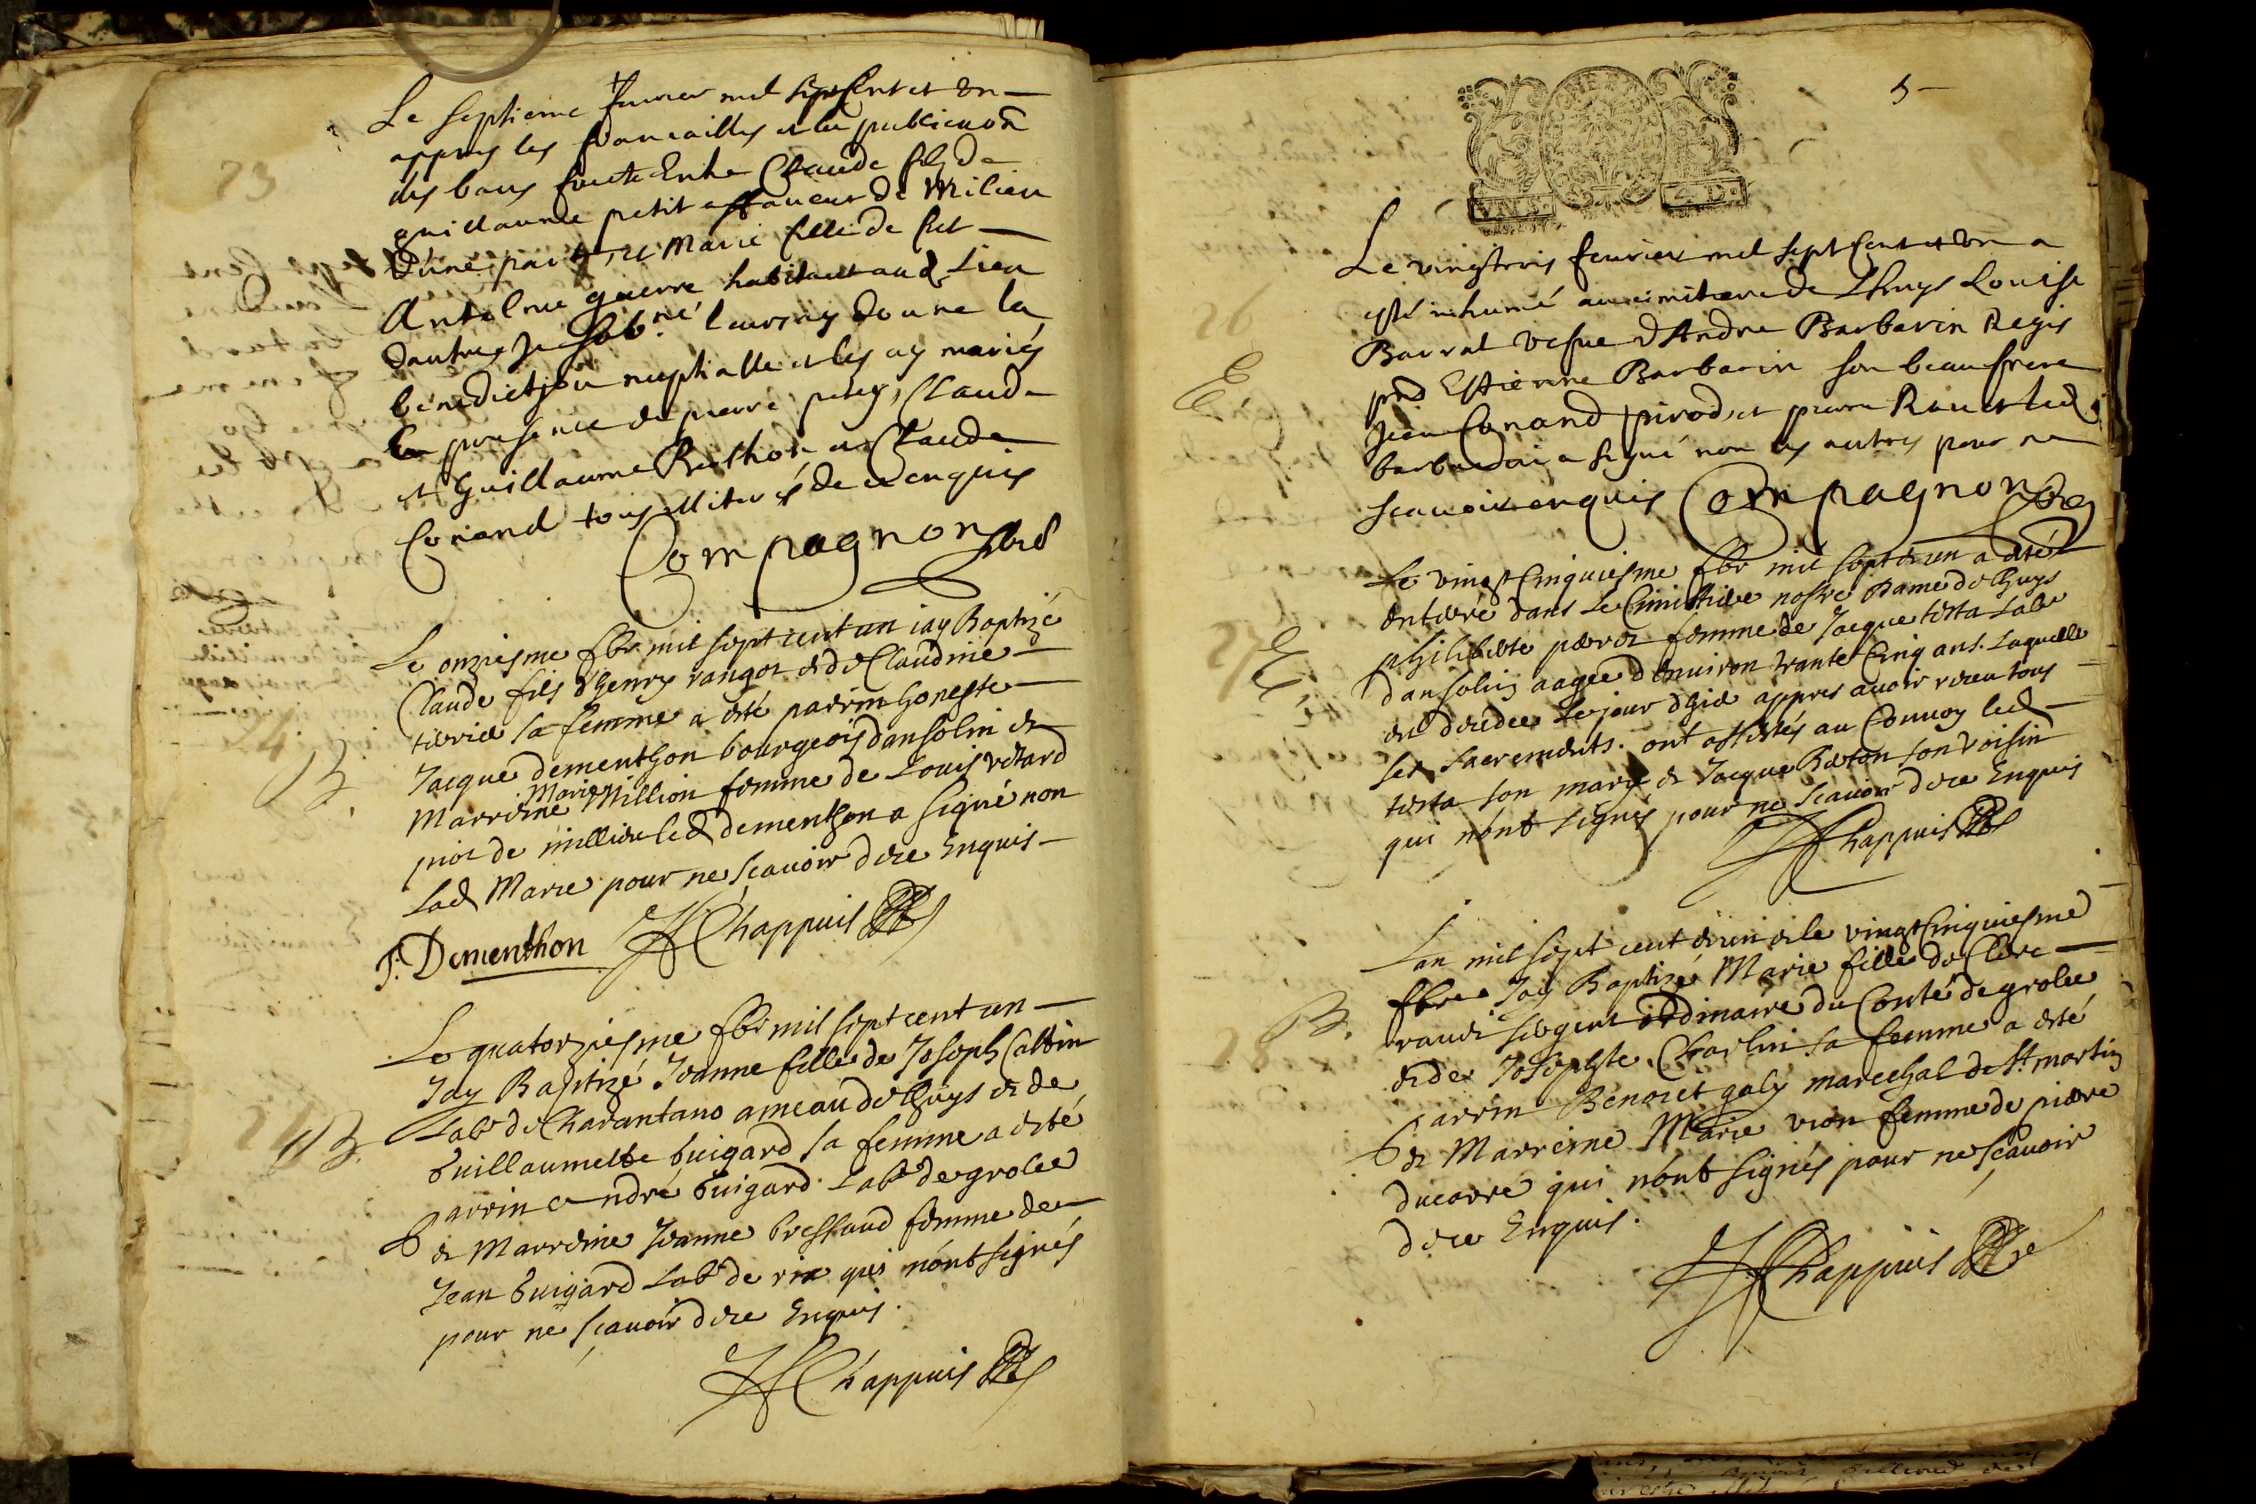 23
Le septieme feurier mil sept Cent et un
appres les fiancailles et la publication
des bans faicte Entre Claude fils de
guillaume petit de Milieu
d'une part, et Marie fille de feu
Antoine guerre habitant aud Lieu
dautre Je leur ay donné la
benediction nuptialle et les ay mariés
En presence de pierre petit, Claude
et Guillaume Berthon et Claude
Conand tous illiterés de ce enquis
Compagnon
24
B.
Le onziesme fbr mil sept cent un iay Baptizé
Claude fils d'henry rangot et de Claudine
sa femme a esté parrin honeste
Jacque dementhon bourgeois dansolin et
Marreine Marie Million femme de Louis retard
de millieu led dementhon a signé non
lad Marie pour ne scauoir de ce Enquis
J. Dementhon Chappuis
B.
Le quatorziesme fbr mil sept cent un
Jay Baptizé Jeanne fille de Joseph Cattin
Labr de Charantano ameau de Lhuys et de
Guillaumette Guigard sa femme a esté
Parrin andré Guigard Labr de grolee
et Marreine Jeanne bressaud femme de
Jean Guigard Labr de rix qui nont signés
pour ne scauoir de ce Enquis.
Chappuis
5
26
E
Le vingtrois feurier mil sept Cent et un a
esté inhumé au cimitiere de Lhuys Louise
Barral vefue d'Andre Barbarin Regis
Estienne Barbarin son beaufrere
Jean Conand pirod, et pierre led
a signé non les autres pour ne
scauoir enquis Compagnon
27
E
Le vingt Cinquiesme fbr mil sept et un a esté
enterré dans Le Cimistiere nostre Dame de Lhuys
philiberte femme de Jacque testa Labr
dansolin aagée denuiron trante Cinq ans. Laquelle
est decedee le jour dhier appres auoir receu tous
ses sacrements. ont assistés au Conuoy led
testa son mary et Jacque son Voisin
qui nont signés pour ne scauoir de ce Enquis
Chappuis
28
B.
Lan mil sept cent et un et le vingt Cinquiesme
fbre Jay Baptizé Marie fille de Clere
sergent ordinaire du Conté de grolee
et de Josephte Charlin sa femme a esté
Parrin Benoict galy marechal de St martin
et Marreine Marie vion femme de pierre
ducarre qui nont signés pour ne scauoir
de ce Enquis.
Chappuis